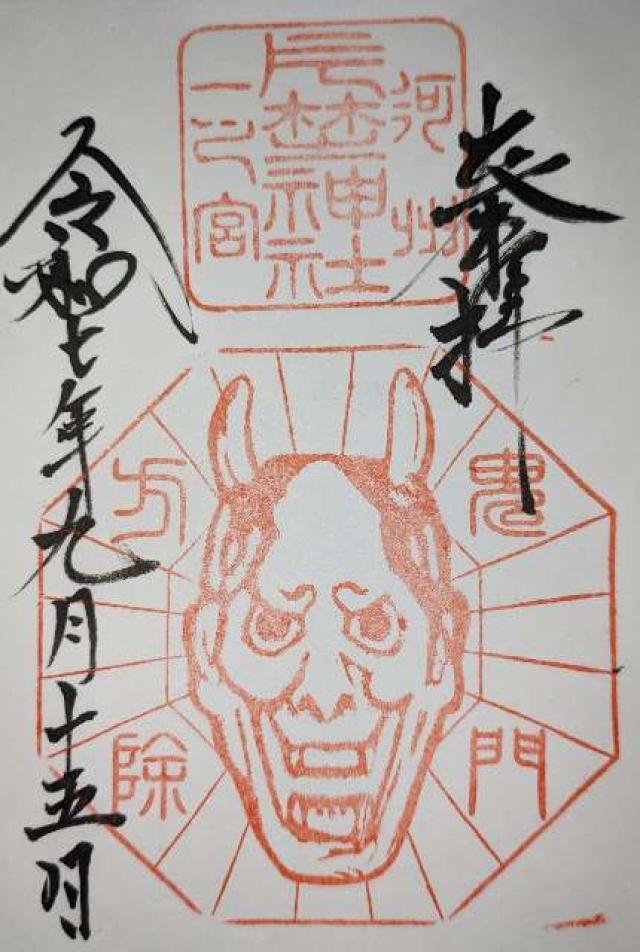 奉拝
河州
片埜神社
一之宮
鬼門
方除
令和七年九月十五日